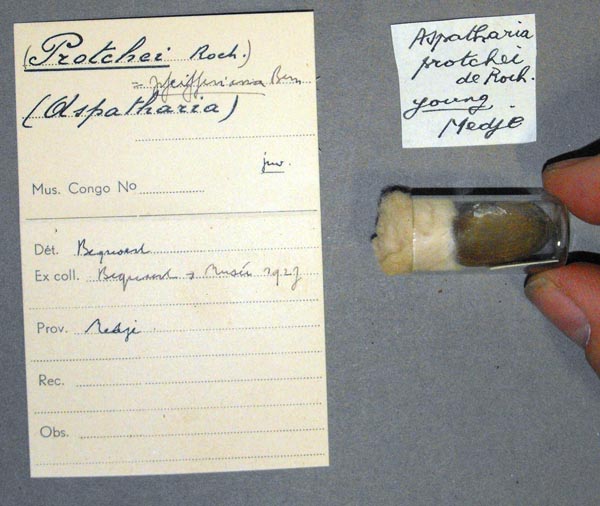 (Protchei Roch.)
= pfeifferiana Bern
(Aspatharia)
juv.
Mus. Congo No
Dét. Bequaert
Ex coll. Bequaert → Musée 1927
Prov. Medje
Rec.
Obs.
Aspatharia
protchei
de Roch.
young.
Medje